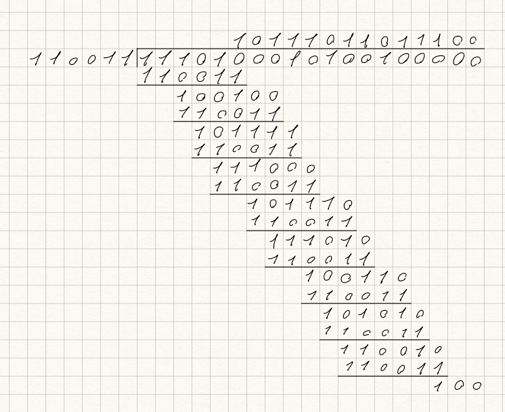 10111011011100
110011 1110100010100100000
110011
100100
110011
101111
110011
111000
110011
101110
110011
111010
110011
100110
110011
101010
110011
110010
110011
100